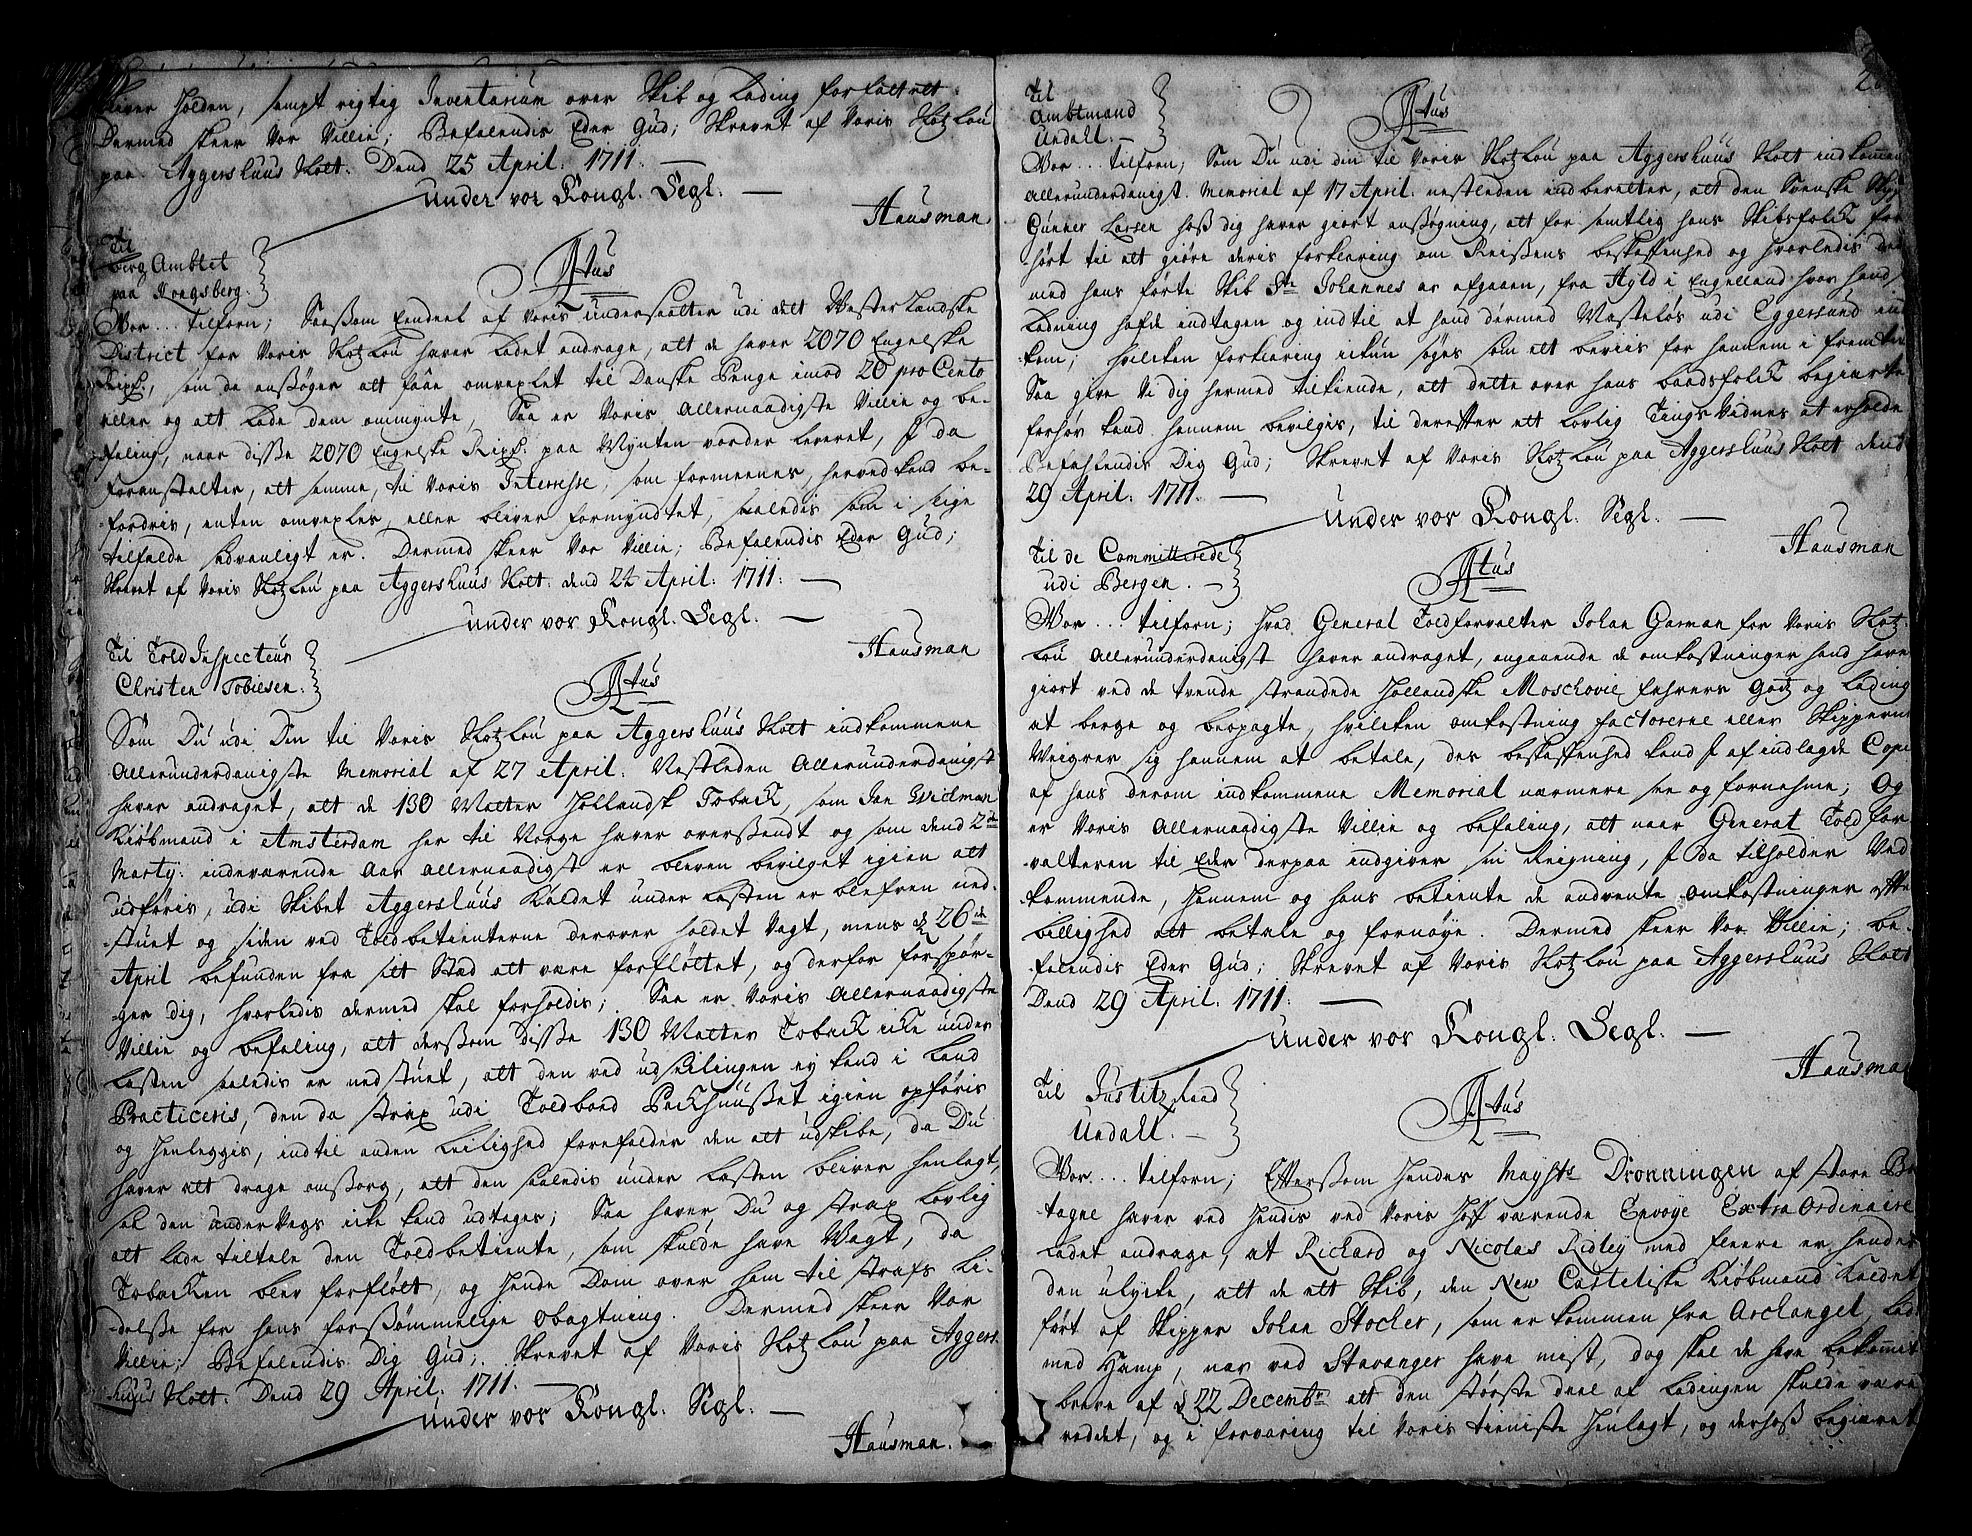 bliver holden, sampt rigtig Inventarium over Skib og Lading forfattet.
Dermed skeer Vor Villie; Befalendis Eder Gud; Skrevet af Voris Slotz Lou
paa Aggershuus Slott. Dend 25 April. 1711.
Under vor Kongl. Segl.
Hausman.
Til
berg Amblet
paa Kongsberg.
Atus
Vor... tilforn; Saassom Eendeel af Voris Undersaatter udi det Vester Landske
District for Voris Slotz Lou haver ladet andrage, att de haver 2070 Engelske
som de anssøger att faae omvexlet til Danske Penge imod 20 pro Cento
eller og att lade dem ommynte, Saa er Voris Allernaadigste Villie og be-
faling, naar disse 2070 Engelske paa Mynten vorder leveret, I da
foranstalter, att samme, til Voris Interesse, som formeenes, herved kand be-
fordris, enten omvexles, eller bliver formyndtet, saaledis som i slige
tilfelde sedvanligt er. Dermed skeer Vor Villie; Befalendis Eder Gud;
Skrevet af Voris Slotz Lou paa Aggershuus Slott: dend 24 April: 1711.
Under vor Kongl. Segl.
Hausman
Til Told Inspecteur
Christen Tobiesen.
Atus
Som Du udi Din til Voris Slotz Lou paa Aggershuus Slott indkommene
Allerunderdanigste Memorial af 27 April. Nestleden Allerunderdanigst
haver andraget, att de 130 Matter Hollandsk Toback, som Jan Wichman
Kiøbmand i Amsterdam her til Norge haver overssendt og som dend 2den
Marty: indeværende Aar allernaadigst er bleven bevilget igien att
udføris, udi Skibet Aggershuus Kaldet under Lasten er blefven ned-
stuet og siden ved Toldbetienterne derover holdet Vagt, mens d. 26de
April befunden fra sit Stæd att være forfløttet, og derfor forspør-
ger dig, hvorledis dermed skal forholdis; Saa er Voris Allernaadigste
Villie og befaling, att dersom disse 130 Matter Toback icke under
Lasten saaledis er nedstuet, att den ved udseilingen ey kand i Land
Practiceris, den da strax udi Toldboed Packhuusset igien opføris
og henleggis, indtil anden Leilighed forefalder den att udskibe, da Du
haver att drage omssorg, att den saaledis under Lasten bliver henlagt,
at den under Vegs icke kand udtages; Saa haver Du og strax lovlig
att lade tiltale den Toldbetiente, som skulde have Vagt, da
Tobacken blev forfløtt, og hende Dom over ham til strafs li-
delsse for hans forssømmelige obagtning. Dermed skeer Vor
Villie; Befalendis Dig Gud; Skrevet af Voris Slotz Lou paa Aggers-
huus Slott. Dend 29 April: 1711.
Under vor Kongl. Segl.
Hausman.
Til
Ambtmand
Undall.
Atus
Vor... tilforn; Som Du udi din til Voris Slotz Lou paa Aggershuus Slott indkommen
Allerunderdanigst. Memorial af 17 April. nestleden indberetter, att den Svenske
Gunner Larsen hoss dig haver giort anssøgning, att faa samtlig hans Skibsfolck for-
hørt til att giøre deris forklaring om Reissens beskaffenhed og hvorledis
med hans førte Skib Ste Johannes er afgaaen, fra Hyld i Engelland hvor hand
Ladning hafde indtagen og indtil at hand dermed Masteløs udi Eggersund ind
kom; hvilcken forklaring ickun søges som ett beviis for hannem i fremtiden
Saa give Vi dig hermed tilkiende, att dette over hans baadsfolck begierte
forhør kand hannem bevilgis, til derefter ett lovlig Tings Vidnes at erholde
Befahlendis Dig Gud; Skrevet af Voris Slotz Lou paa Aggershuus Slott dend
29 April. 1711.
Under vor Kongl. Segl.
Hausman
Til de Committerede
udi Bergen.
Atus
Vor... tilforn; hvad General Toldforvalter Johan Garman for Voris Slotz
Lou Allerunderdanigst haver andraget, angaaende de omkostninger hand haver
giort ved de tvende strandede Hollandske Moschovie fahrers Godtz og Lading
at berge og beopagte, hvilcken omkostning factorerne eller Skipperne
Veigrer sig hannem at betale, des beskaffenhed kand I af indlagde Copie
af hans derom indkommene Memorial nærmere see og fornehme; Og
er Voris Allernaadigste Villie og befaling, att naar General Toldfor-
valteren til Eder derpaa indgiver sin Reigning, I da tilholder Ved
kommende, hannem og hans betiente de anvente omkostninger efter
billighed att betale og fornøye. Dermed skeer Vor Villie; be-
falendis Eder Gud; Skrevet af Voris Slotz Lou paa Aggershuus Slott
Dend 29 April. 1711.
Under vor Kongl. Segl.
Hausman
Til Justitz Raad
Undall.
Atus
Vor... tilforn; Efterssom Hendes Mayhts Dronningen af store Br
tagne haver ved Hendis ved Voris Hoff værende Envoye Extra Ordinaire
Ladet andrage, at Richard og Nicolas Ridley med fleere er hendet
den ulycke, att de ett Skib, den New Casteliske Kiøbmand Kaldet
ført af Skipper Johan Stocher, som er kommen fra Archangel, lad
med Hamp, nær ved Stavanger have mist, dog skal de have bekommit
breve af d. 22 Decembr att den største deel af Ladingen skulde være
reddet, og i forvaring til Voris tieniste henlagt, og derhoss begieret